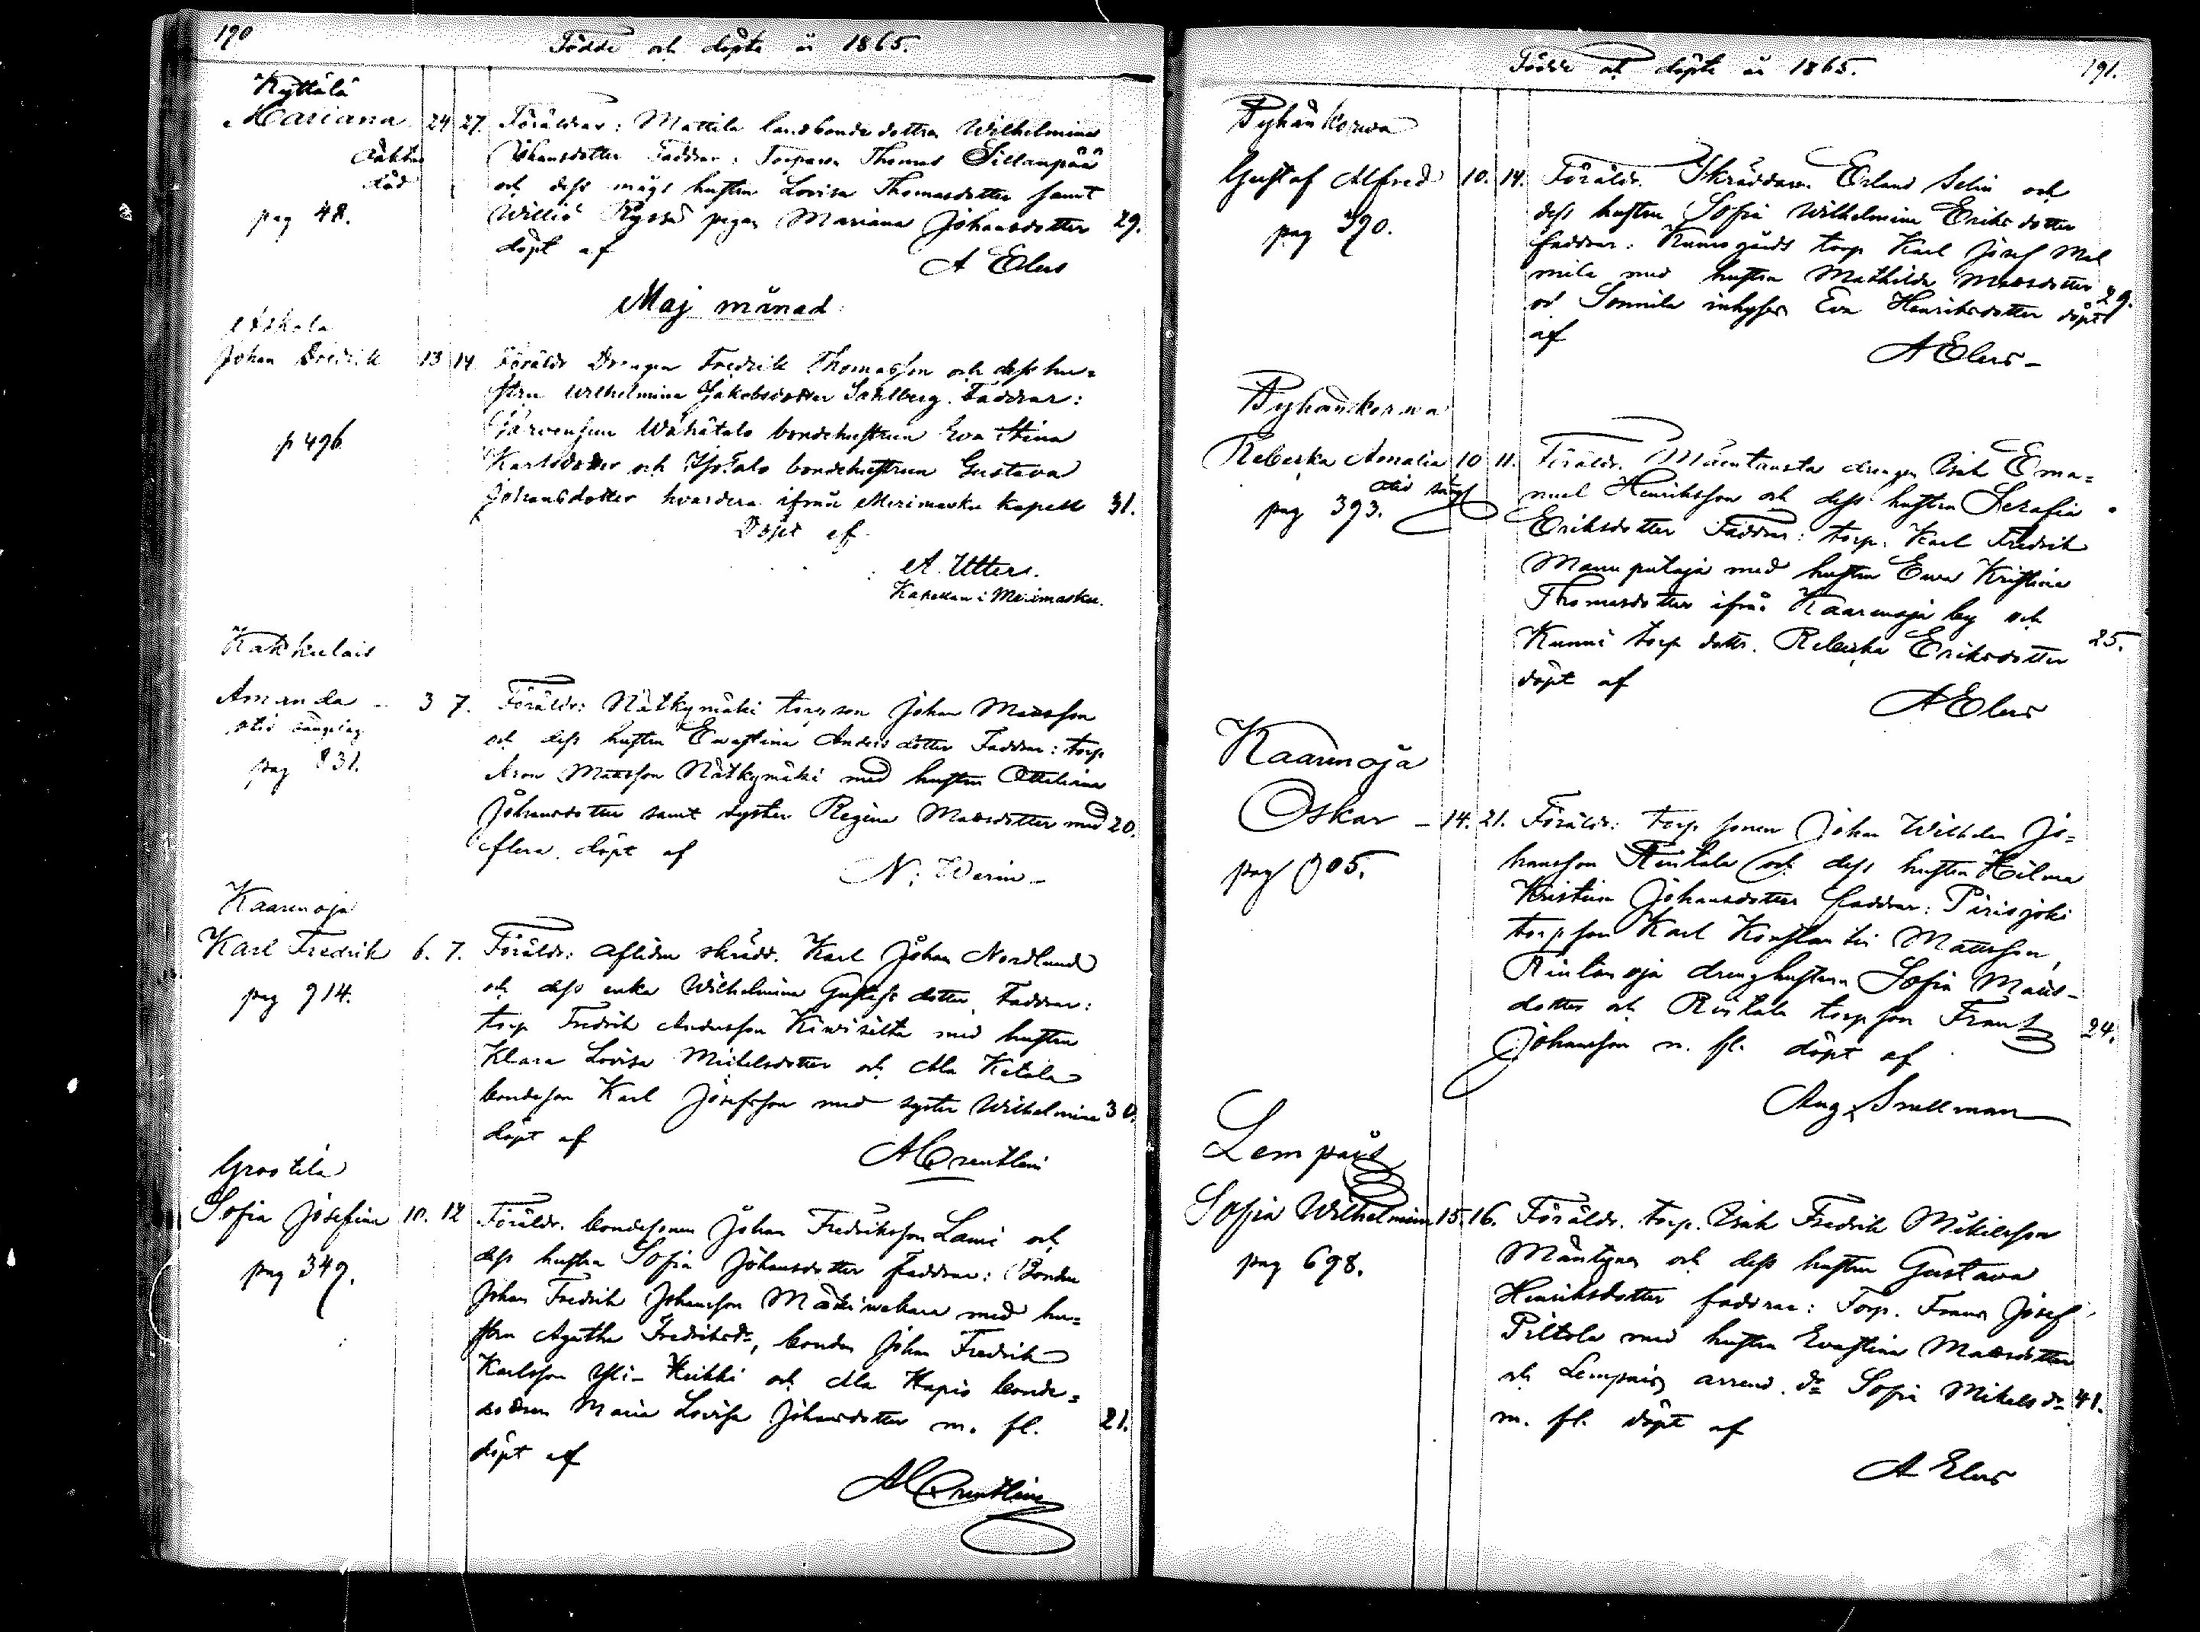 190
Födde och döpte år 1865.
Kyttälä
Mariana 24 27. Föräldrar: Mattila landbonde dottren Wilhelmina
oäkta
Johansdotter Faddrar: Torparen Thomas Sillanpää
död
och dess mågs hustru Lovisa Thomasdotter samt
pag 48.
pigan Mariana Johansdotter 29.
döpt af
A Elers
Maj månad
Askola
Johan Fredrik 13 14 Föräldr Drengen Fredrik Thomasson och dess hu=
stru Wilhelmina Jakobsdotter Sahlberg. Faddrar:
Järvensuu Wähätalo bondehustrun Eva Stina
p 496
Karlsdotter och Isotalo bondehustrun Gustava
Johansdotter hvardera ifrån Merimasku kapell 31.
Döpt af
A. Utter.
Kapellan i Merimasku.
Kakkulais
Amanda 3 7. Föräldr: Nätkymäki torp son Johan Matsson
och dess hustru Evastina Andersdotter Faddrar: torp
pag 831.
Aron Matsson Nätkymäki med hustru Ottiliana
Johansdotter samt syster Regina Matsdotter med 20.
flera. döpt af
N: Werin
Kaarnoja
Karl Fredrik 6. 7. Föräldr: aflidne skrädd. Karl Johan Nordlund
pag 914.
och dess enka Wilhelmina Gustafs dotter, Faddrar:
torp Fredrik Andersson Kiwisilta med hustru
Klara Lovisa Mickelsdotter och Ala Ketola
bondeson Karl Josefsson med syster Wilhelmina 30.
döpt af
Grootila
Sofia Josefina 10. 12 Föräldr. bondesonen Johan Fredriksson Lassi och
dess hustru Sofia Johansdotter faddrar: Bonden
pag 349.
Johan Fredrik Johansson Mäkiwahara med hu=
stru Agatha Fredriksd:, bonden Johan Fredrik
Karlsson Yli-Heikki och Ala Hapio bonde=
Maria Lovisa Johansdotter m. fl. 21.
döpt af
Födde och döpte år 1865.
191.
Pyhänkorwa
Gustaf Alfred 10. 14. Föräldr. Skräddaren Erland Selin och
dess hustru Sofia Wilhelmina Eriksdotter
pag 390.
faddrar: torp Karl Josef Mal
mila med hustru Mathilda Matsdotter 29.
och Sonnila inhyses Eva Henriksdotter döpt
af
A Elers
Pyhänkorwa
Rebecka Amalia 10 11. Föräldr. Mäentausta drengen Isak Ema=
nuel Henriksson och dess hustru Serafia
pag 393.
Eriksdotter Faddrar: torp. Karl Fredrik
med hustru Eva Kristina
Thomasdotter ifrån Kaarnoja by och
Kunni torp dottr. Rebecka Eriksdotter 25.
döpt af
A Elers
Kaarnoja
Oskar 14. 21. Föräldr: torp sonen Johan Wilhelm Jo=
hansson Rintala och dess hustru Hilma
Kristina Johansdotter faddrar: Pirisjoki
torpson Karl Konstantin Mattsson,
Rintanoja drenghustrun Sofia Mats-
dotter och Rintala torpson Frans 24.
Johansson m. fl. döpt af
Aug Snellman
Lempäis
Sofia Wilhelmina 15. 16. Föräldr. torp. Isak Fredrik Mikelsson
pag 698.
Mäntynen och dess hustru Gustava
Henriksdotter faddrar: Torp. Frans Josef
Piltola med hustru Evastina Matsdotter
och Lempäis arrend. d:r Sofia Mikelsd:r 41.
m. fl. döpt af
A Elers